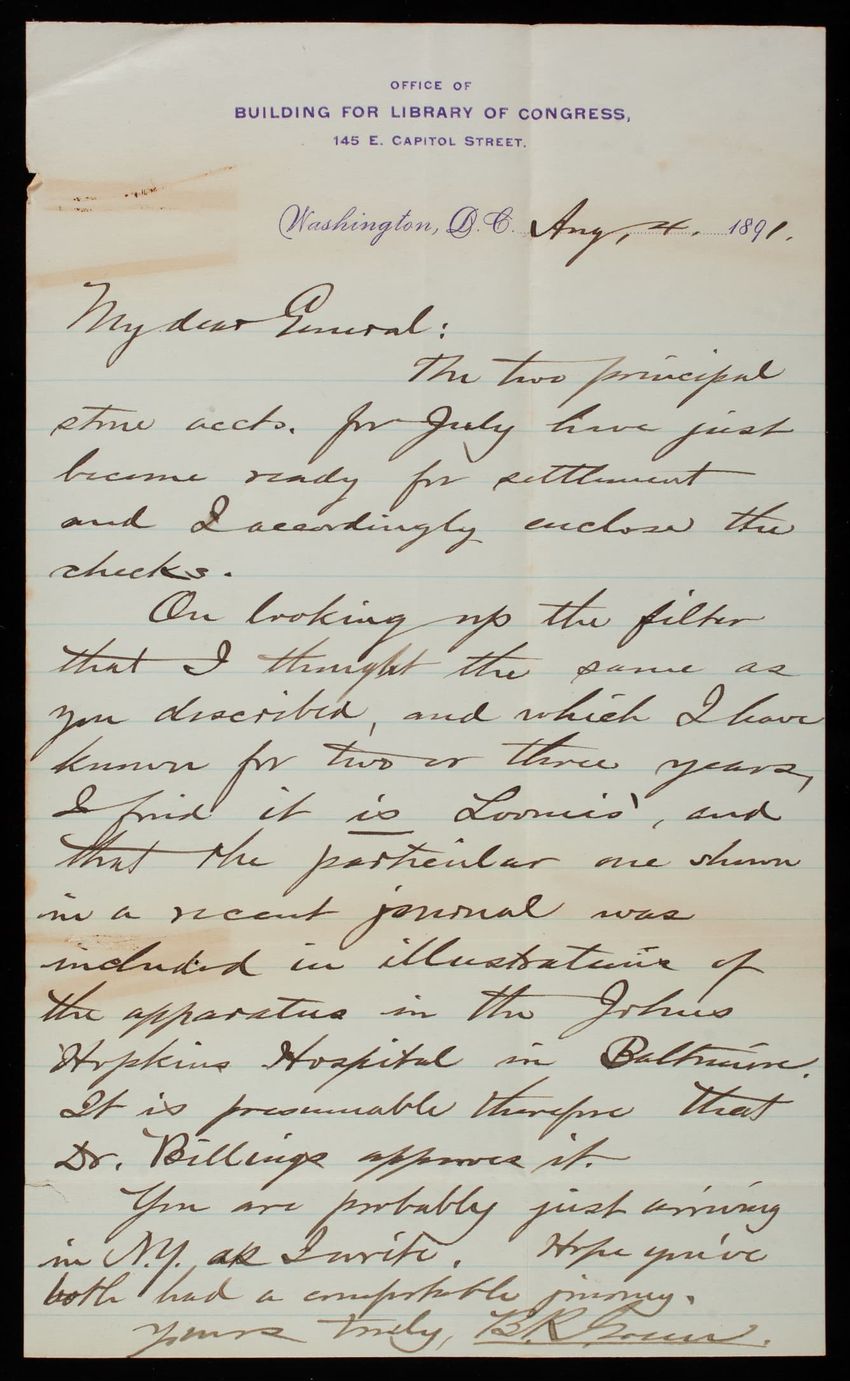 OFFICE OF
BUILDING FOR LIBRARY OF CONGRESS,
145 E. CAPITOL STREET.
Washington, D.C. Aug, 4. 1891.
My dear General:
The two principal
stone accts. for July have just
become ready for settlement
and I accordingly enclose the
checks.
On looking up the filter
that I thought the same as
you described, and which I have
known for two or three years,
I find it is Loomis', and
that the particular one shown
in a recent journal was
included in illustrations of
the apparatus in the Johns
Hopkins Hospital in Baltimore.
It is presumable therefore that
Dr. Billings approves it.
You are probably just arriving
in N.Y. as I write. Hope you've
both had a comfortable journey.
Yours truly, B.R. Green.